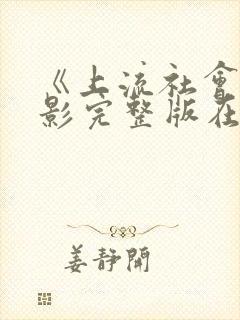 《上流社會
影完整版在
姜静開